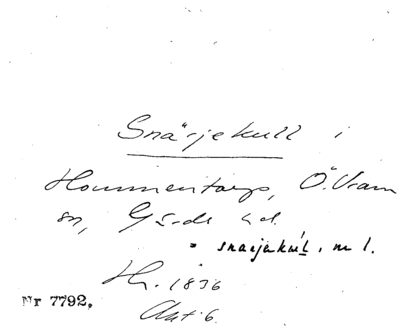 Snärjekull i
Hommentorp, Ö. Vram
sn, Gärds hd.
snärjakul, m 1.
Hr. 1836
Nr 7792.
Akt 6.